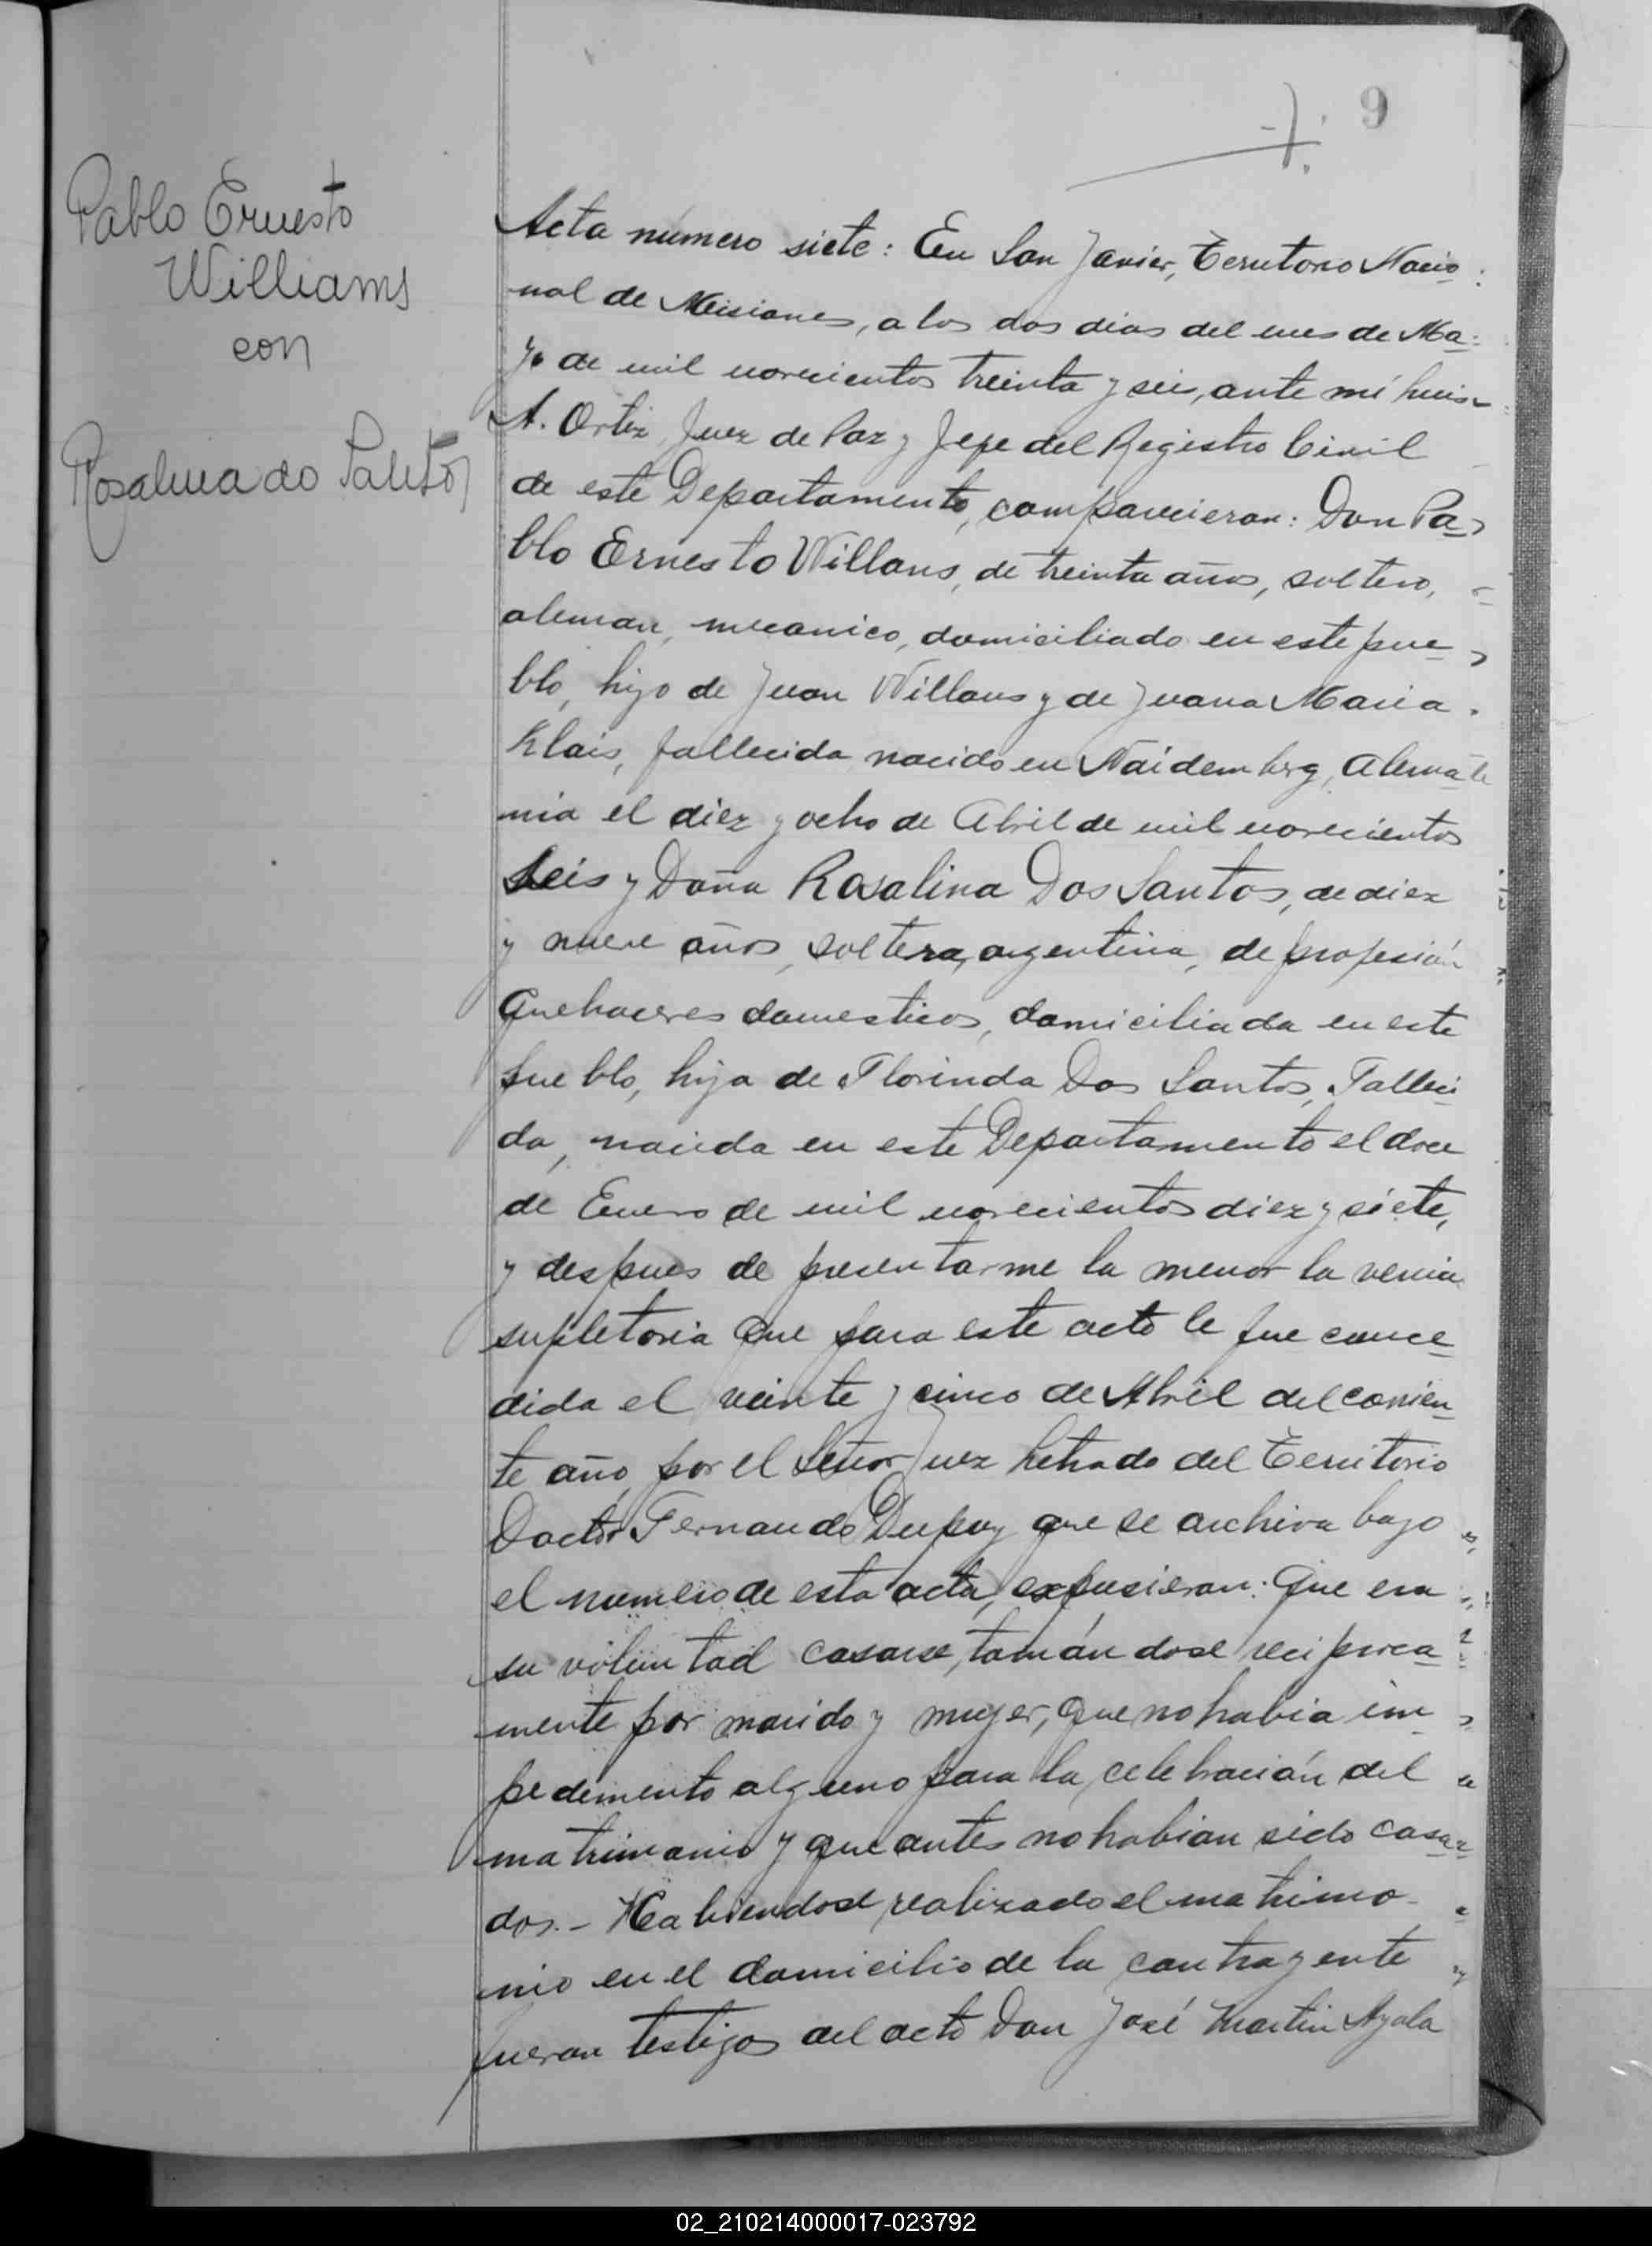 9
-7.
Pablo Ernesto
Williams
con
Rosalina do Santos
Acta número siete: En San Javier, Territorio Nacio
nal de Misiones, a los dos dias del mes de Ma-
yo de mil novecientos treinta y seis, ante mi Luis
A. Ortiz, Juez de Paz y Jefe del Registro Civil
de este Departamento, comparecieron: Don Pa-
blo Ernesto Willans, de treinta años, soltero,
aleman, mecanico, domiciliado en este pue-
blo, hijo de Juan Willans y de Juana Maria
Klais, fallecida nacido en Naidemberg, Alema-
nia el diez y ocho de Abril de mil novecientos
seis y Doña Rosalina Dos Santos, de diez
y nueve años, soltera, argentina, de profesión
quehaceres domesticos, domiciliada en este
pueblo, hija de Florinda Dos Santos, Falleci-
da, nacida en este Departamento el doce
de Enero de mil novecientos diez y siete,
y despues de presentarme la menor la venia
supletoria que para este acto le fue conce-
dida el veinte y cinco de Abril del corrien-
te año, por el Señor Juez Letrado del Territorio
Doctor Fernando Dupuy que se archiva bajo
el numero de esta acta, expusieron: Que era
su voluntad casarse, tomándose reciproca-
mente por marido y mujer, que no habia im-
pedimento alguno para la celebración del
matrimonio y que antes no habian sido casa-
dos.- Habiendose realizado el matrimo-
nio en el domicilio de la contrayente
fueron testigos del acto Don José Martin Ayala
02_210214000017-023792